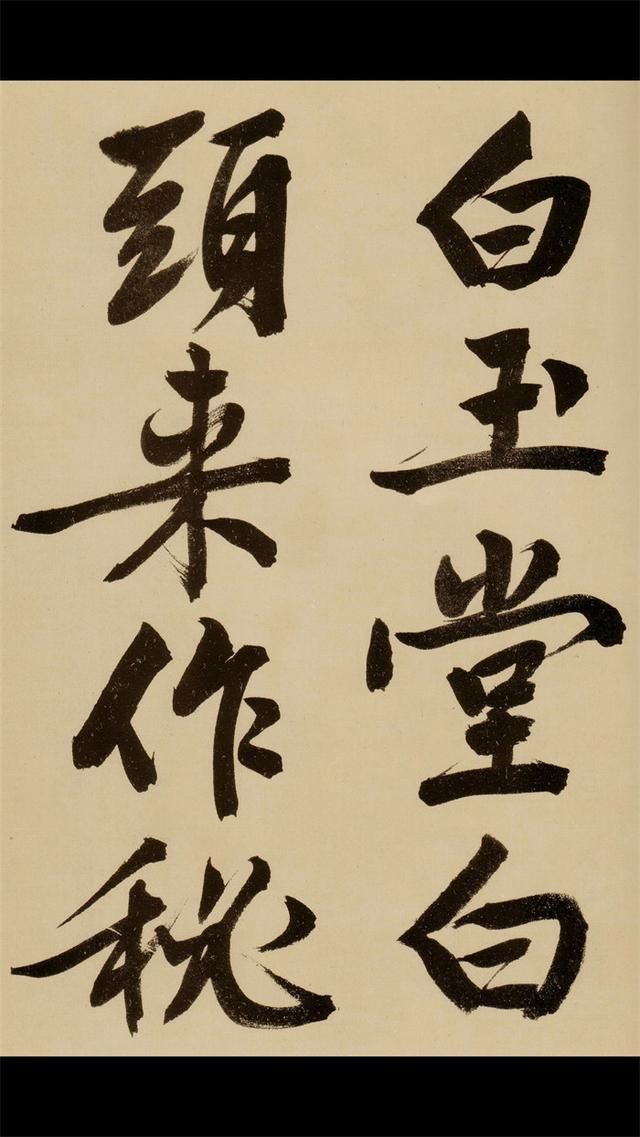 白玉堂白
頭来作秘